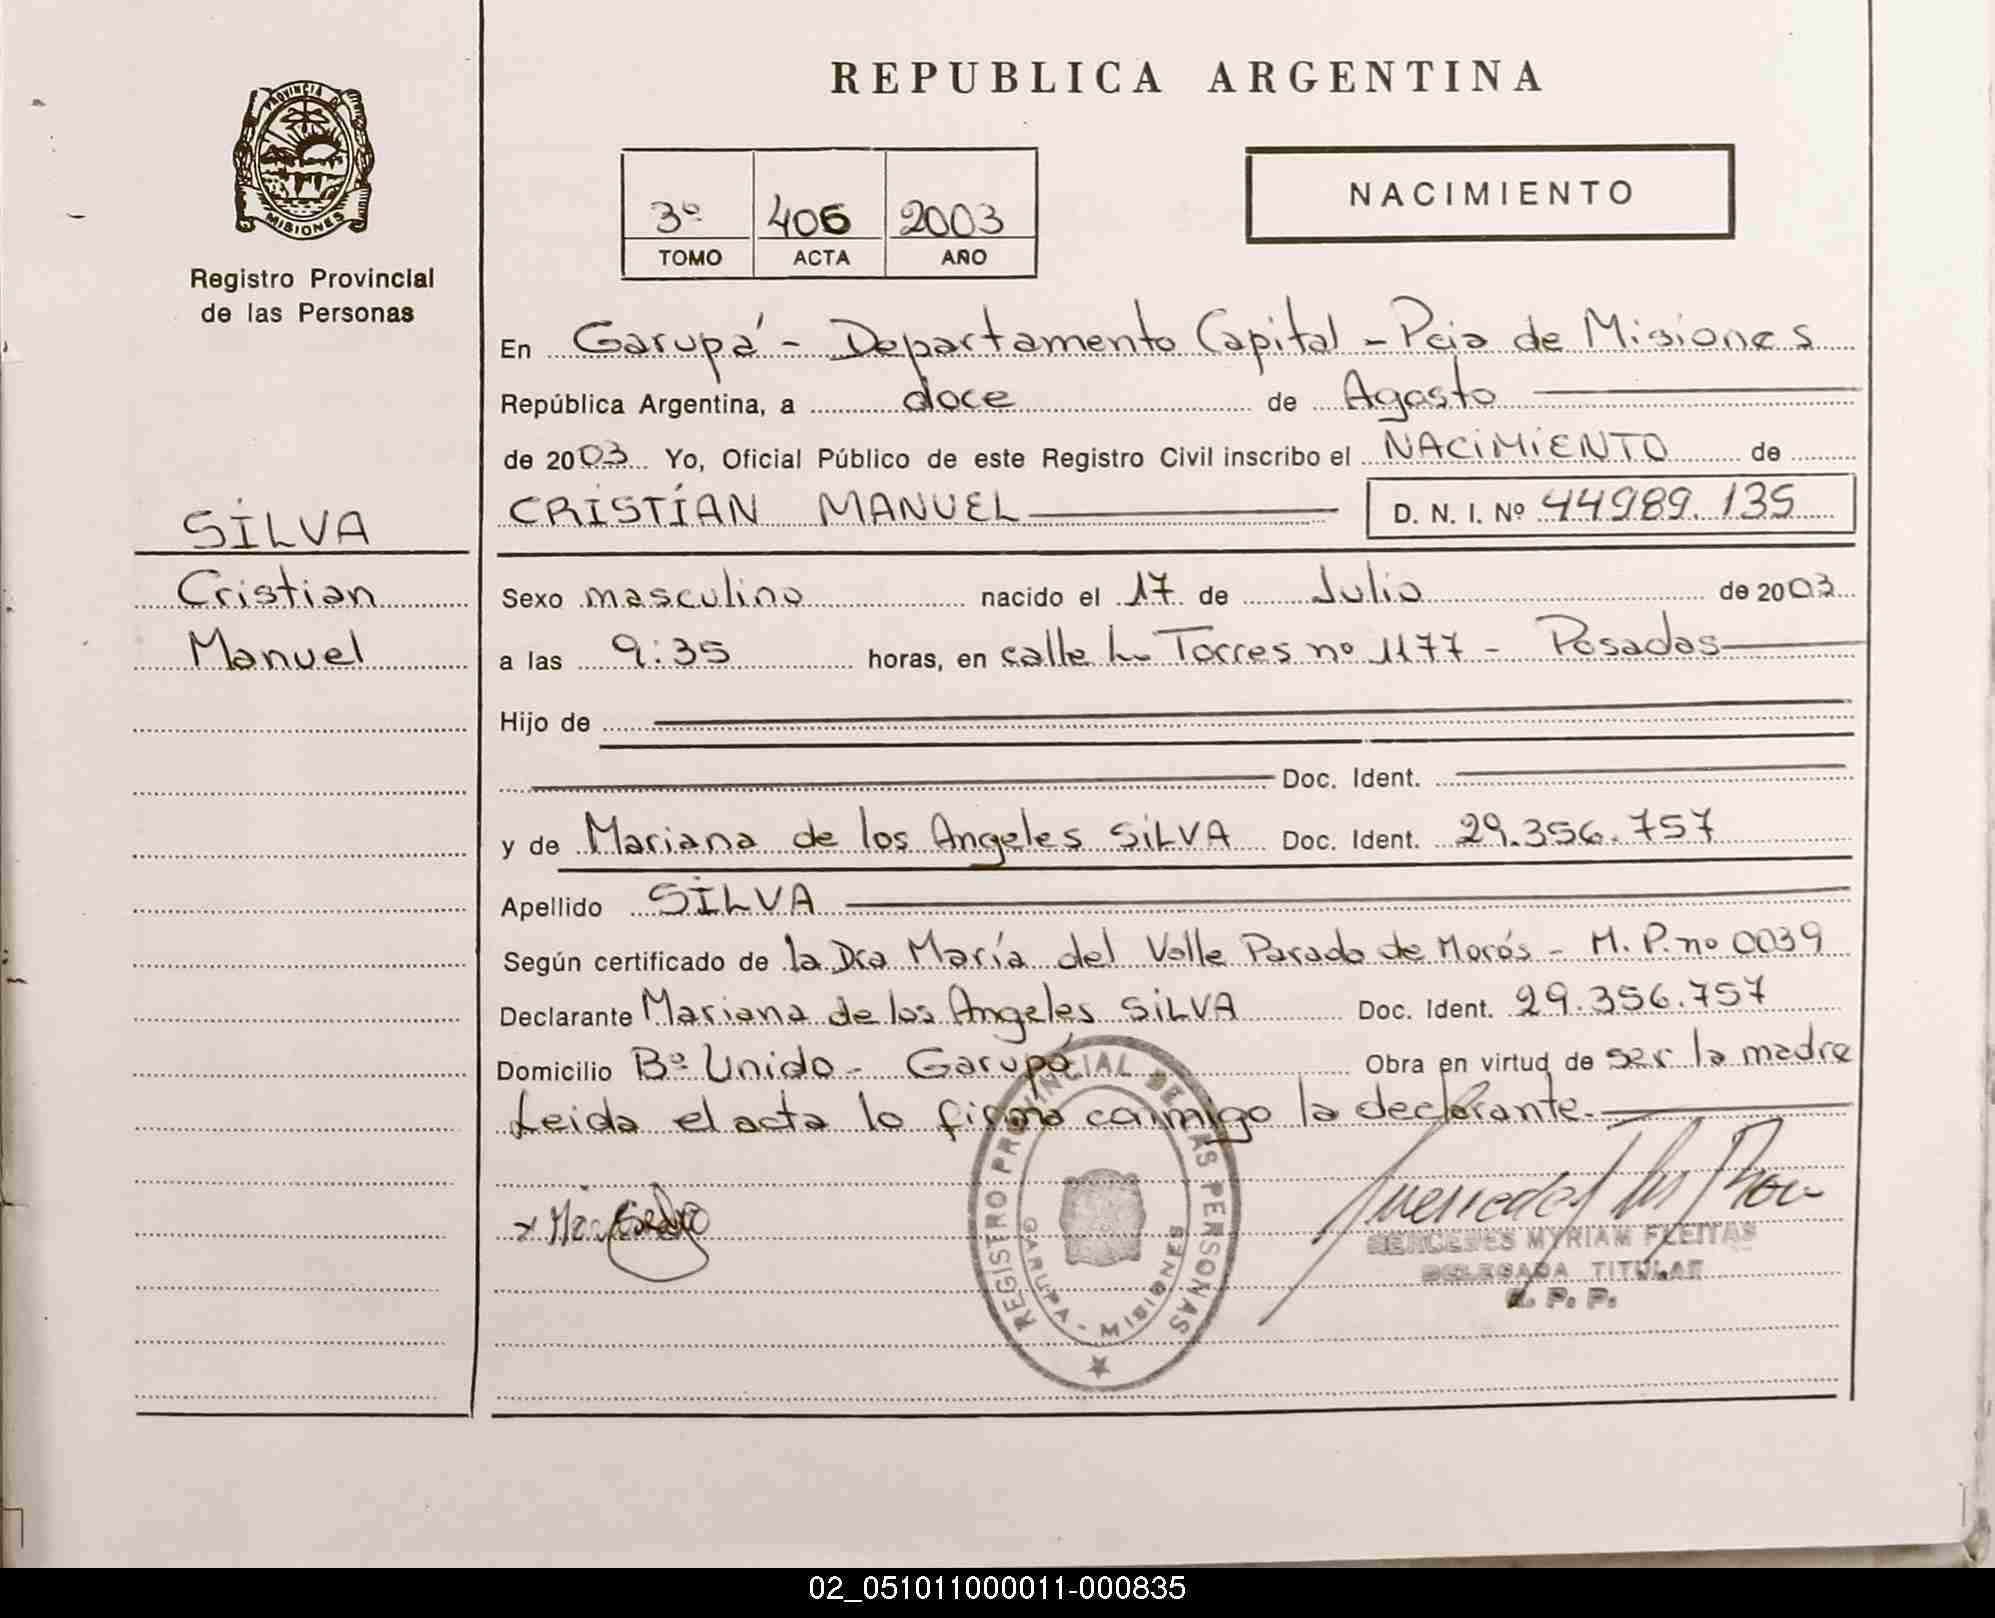 REPUBLICA ARGENTINA
PROVINCIA DE
MISIONES
Registro Provincial
de las Personas
3º 406 2003
TOMO ACTA AÑO
NACIMIENTO
En Garupá - Departamento Capital - Pcia de Misiones
República Argentina, a doce de Agosto
de 2003 Yo, Oficial Público de este Registro Civil inscribo el NACIMIENTO de
SILVA
CRISTÍAN MANUEL D. N. I. Nº 44989.135
Cristian
Sexo masculino nacido el 17 de Julio de 2003
Manuel
a las 9:35 horas, en calle L. Torres nº 1177 - Posadas
Hijo de
Doc. Ident.
y de Mariana de los Angeles SILVA Doc. Ident. 29.356.757
Apellido SILVA
Según certificado de la Dra María del Valle Parada de Morós - M. P. nº 0039
Declarante Mariana de los Angeles SILVA Doc. Ident. 29.356.757
Domicilio Bº Unido - Garupá Obra en virtud de ser la madre
Leida el acta lo firma conmigo la declarante.
REGISTRO PROVINCIAL DE LAS PERSONAS
GARUPA - MISIONES
MERCEDES MYRIAM FLEITAS
DELEGADA TITULAR
R. P. P.
02_051011000011-000835